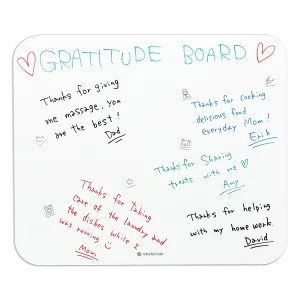 GRATITUDE BOARD
Thanks for giving
me massage, you
are the best!
Dad
Thanks for cooking
delicious food
everyday Mom!
Erik
Thanks for Sharing
treats with me
Amy
Thanks for taking
care of the laundry and
the dishes while I
was running
Mom
Thanks for helping
with my home work
David